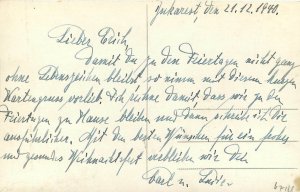 Bukarest den 21.12.1940.
Lieber Fritz
Damit Du zu den Feiertagen nicht ganz
ohne Lebenszeichen bleibst so nimm mit diesem kurzen
Kartengruss vorlieb. Ich rechne damit dass wir zu den
Feiertagen zu Hause bleiben und dann schreibe ich Dir
ausführlicher. Mit den besten Wünschen für ein frohes
und gesundes Weihnachtsfest verbleiben wir Dein
Karl u.